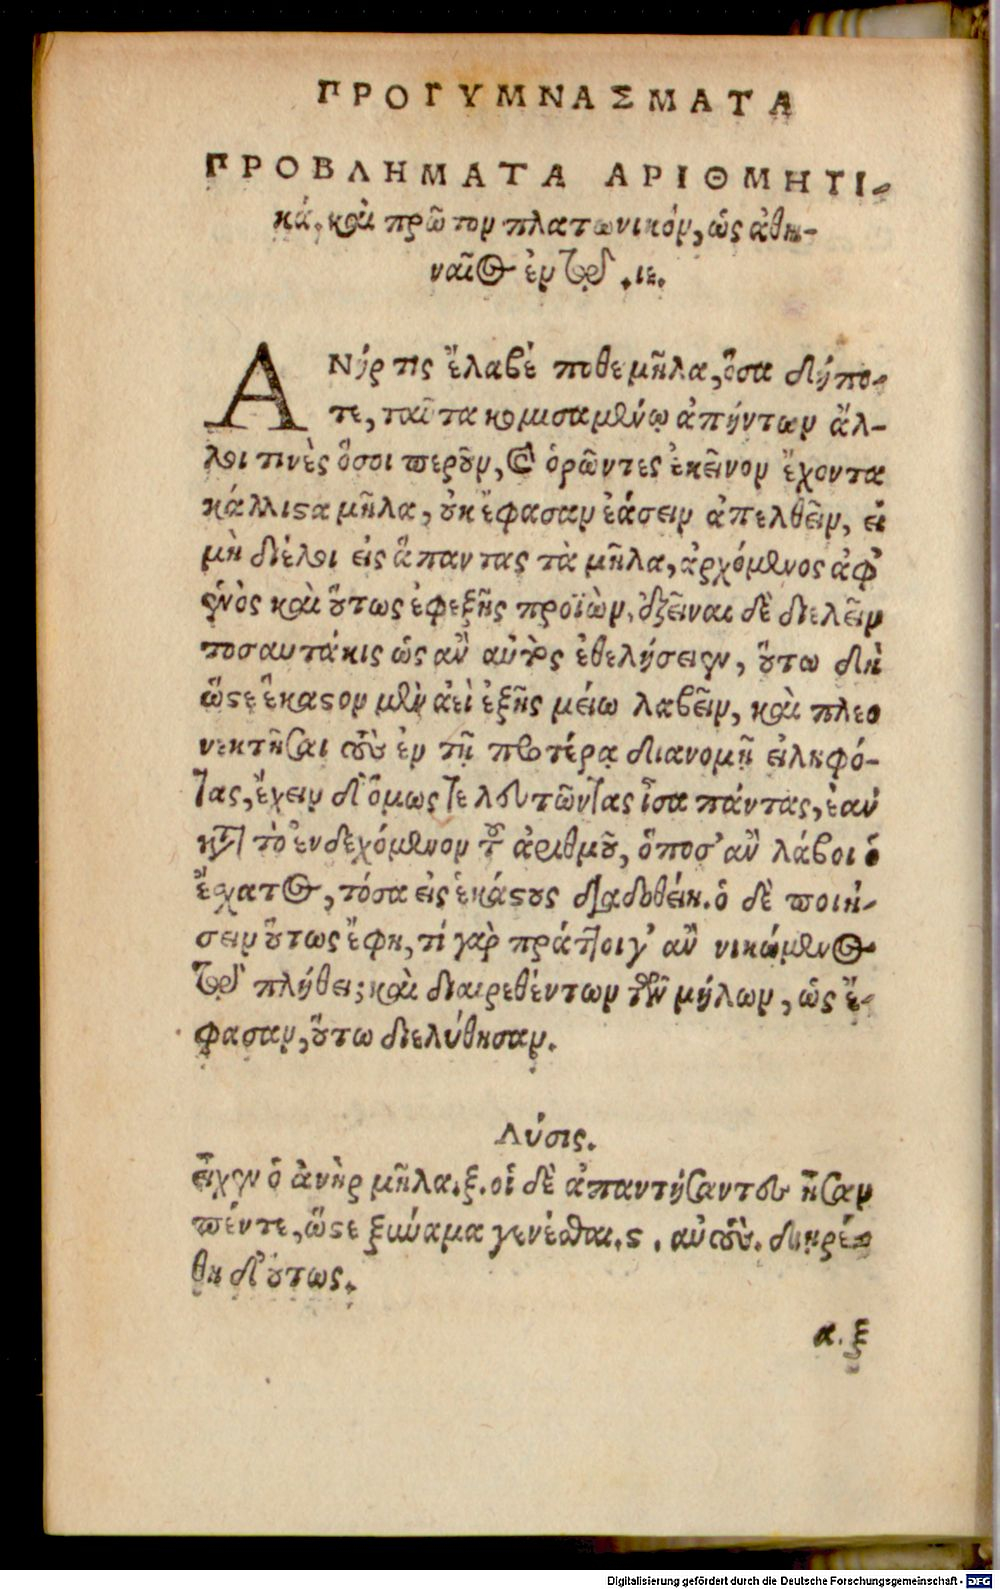 ΠΡΟΓΥΜΝΑΣΜΑΤΑ
ΠΡΟΒΛΗΜΑΤΑ ΑΡΙΘΜΗΤΙ-
κά, καὶ πρῶτον πλατωνικόν, ὡς ἀθη-
ναῖος ἐν τῷ .ιε.
ΑΝήρ τις ἔλαβέ ποθε μῆλα, ὅσα δήπο-
τε, ταῦτα κομισαμένῳ ἀπήντων ἄλ-
λοι τινὲς ὅσοι περοῦν, καὶ ὁρῶντες ἐκεῖνον ἔχοντα
κάλλιστα μῆλα, οὐκ ἔφασαν ἐάσειν ἀπελθεῖν, εἰ
μὴ διέλοι εἰς ἅπαντας τὰ μῆλα, ἀρχόμενος ἀφ'
ἑνὸς καὶ οὕτως ἐφεξῆς προϊὼν, δὲ διελεῖν
τοσαυτάκις ὡς ἂν αὐτὸς ἐθελήσειεν, οὕτω δὴ
ὥστε ἕκαστον μὲν ἀεὶ ἑξῆς μείω λαβεῖν, καὶ πλεο
νεκτῆσαι τοὺς ἐν τῇ προτέρᾳ διανομῇ εἰληφό-
τας, ἔχειν δ' ὅμως τελευτῶντας ἴσα πάντας, ἐὰν
κατὰ τὸ ἐνδεχόμενον τοῦ ἀριθμοῦ, ὅποσ' ἂν λάβοι ὁ
ἔσχατος, τόσα εἰς ἑκάστους διαδοθείη. ὁ δὲ ποιή-
σειν οὕτως ἔφη, τί γὰρ πράττοι γ' ἂν νικώμενος
τῷ πλήθει; καὶ διαιρεθέντων τῶν μήλων, ὡς ἔ-
φασαν, οὕτω διελύθησαν.
Λύσις.
εἶχεν ὁ ἀνὴρ μῆλα .ξ. οἱ δὲ ἀπαντήσαντες ἦσαν
πέντε, ὥστε ξυνάμα γενέσθαι .ς. αὐτούς. διῃρέ-
θη δ' οὕτως.
α. ξ